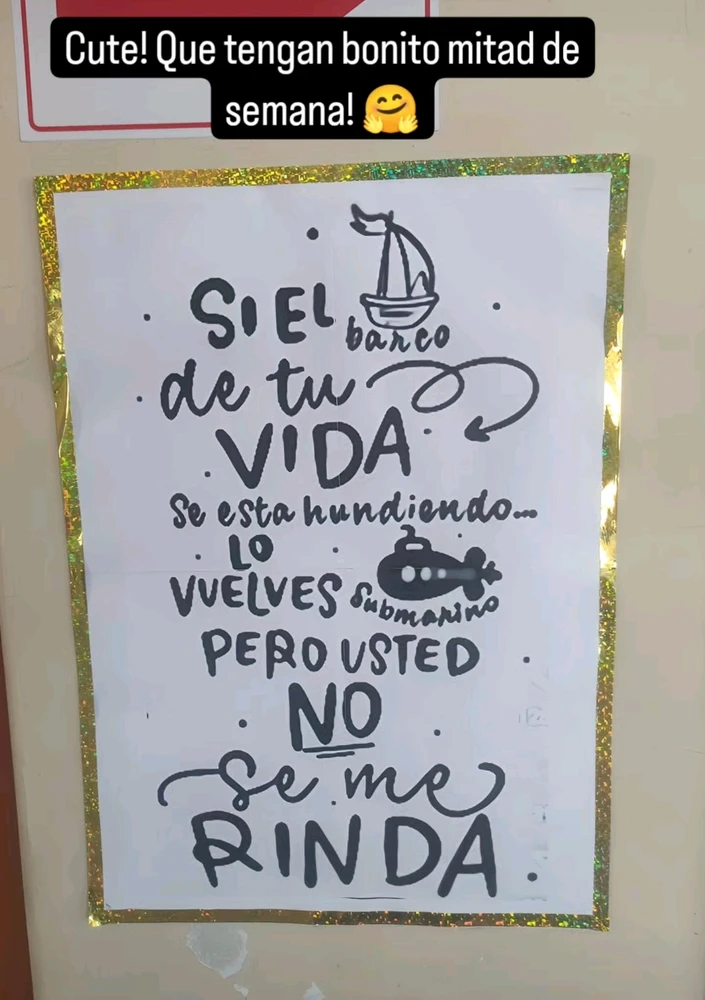 Cute! Que tengan bonito mitad de
semana! 🤗
SI EL
barco
de tu
VIDA
Se esta hundiendo...
LO
VUELVES submarino
PERO USTED
NO
Se me
RINDA